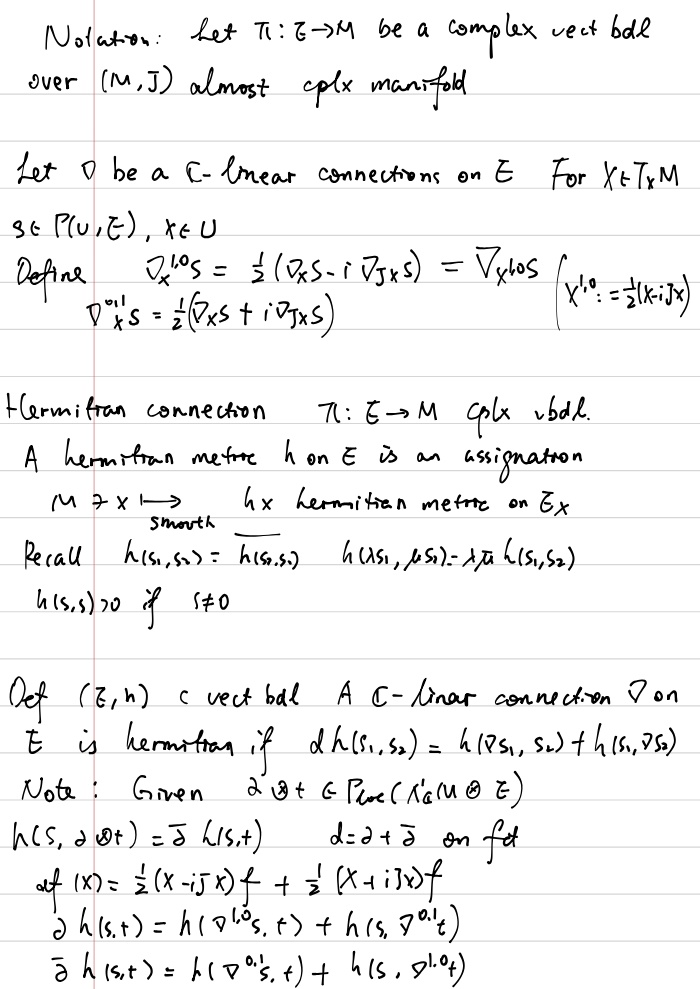 Notation: Let π: E→M be a complex vect bdl
over (M, J) almost cplx manifold
Let ∇ be a ℂ-linear connections on E For X∈TₓM
s∈Γ(U,E), x∈U
Define ∇ₓ¹·⁰s = ½(∇ₓs - i∇_Jxs) = ∇_X¹·⁰s (X¹·⁰ := ½(X-iJX)
∇⁰·¹ₓs = ½(∇ₓs + i∇_Jxs)
Hermitian connection π: E→M Cplx vbdl.
A hermitian metric h on E is an assignation
M ∋ x ⟼ hx hermitian metric on Ex
smooth
Recall h(s₁,s₂) = \overline{h(s₂,s₁)} h(λs₁, μs₂) = λμ̄ h(s₁,s₂)
h(s,s)>0 if s≠0
Def (E,h) c vect bdl A ℂ-linar connection ∇ on
E is hermitian if dh(s₁,s₂) = h(∇s₁, s₂) + h(s₁,∇s₂)
Note: Given ∂⊗t ∈ Γloc(Λ'ℂ M ⊗ E)
h(s, ∂⊗t) = ∂̄ h(s,t) d=∂+∂̄ on fct
df(X) = ½(X-iJX)f + ½(X+iJX)f
∂h(s,t) = h(∇¹·⁰s, t) + h(s, ∇⁰·¹t)
∂̄h(s,t) = h(∇⁰·¹s, t) + h(s, ∇¹·⁰t)